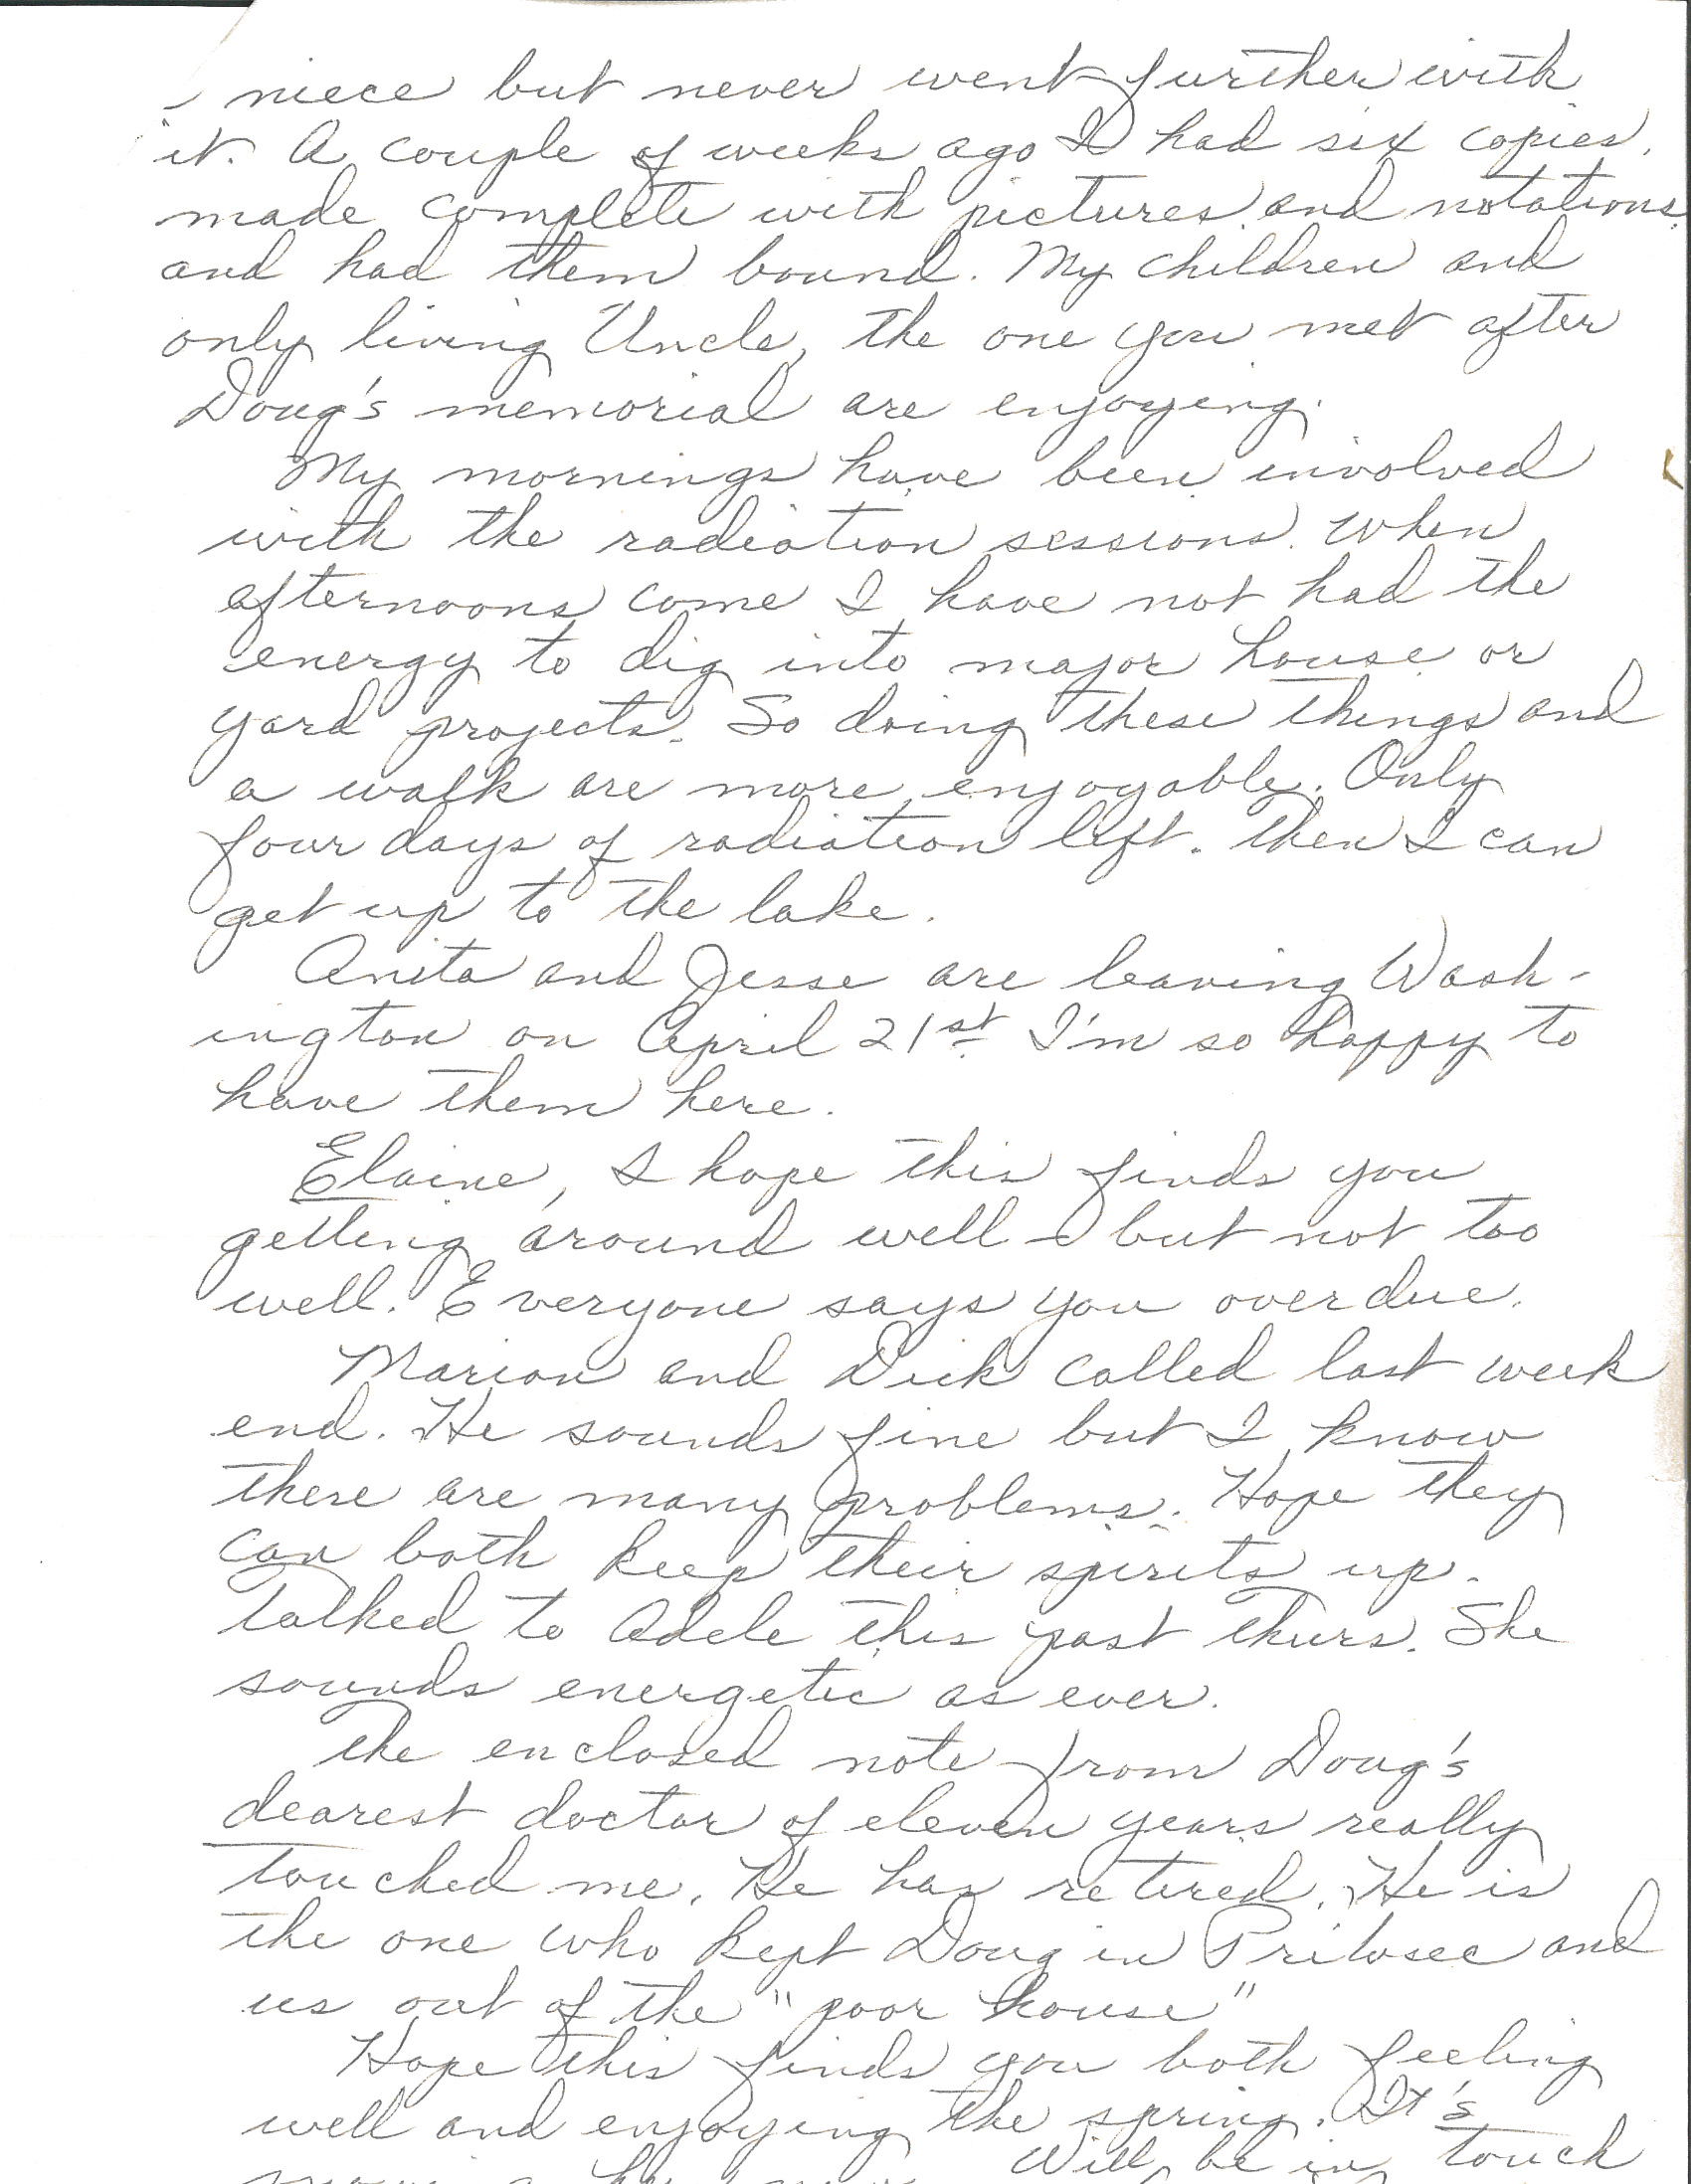 niece but never went further with
it. A couple of weeks ago I had six copies
made complete with pictures and notations
and had them bound. My children and
only living Uncle, the one you met after
Doug's memorial are enjoying.
My mornings have been involved
with the radiation sessions. When
afternoons come I have not had the
energy to dig into major house or
yard projects. So doing these things and
a walk are more enjoyable. Only
four days of radiation left. Then I can
get up to the lake.
Anita and Jesse are leaving Wash-
ington on April 21st. I'm so happy to
have them here.
Elaine, I hope this finds you
getting around well - but not too
well. Everyone says you overdue.
Marion and Dick called last week
end. He sounds fine but I know
there are many problems. Hope they
can both keep their spirits up.
Talked to Adele this past Thurs. She
sounds energetic as ever.
The enclosed note from Doug's
dearest doctor of eleven years really
touched me. He has retired. He is
the one who kept Doug in Prilosec and
us out of the "poor house"
Hope this finds you both feeling
well and enjoying the spring. It's
Will be in touch